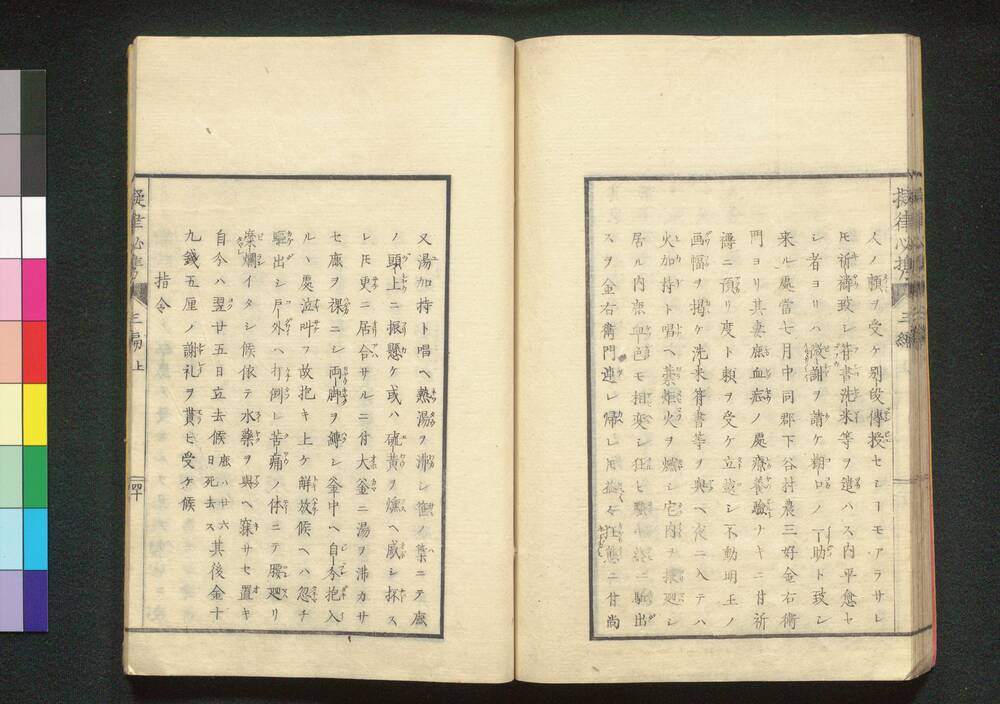 擬律必携 三編
人ノ頼ヲ受ケ別段傳授セシヿモアラサレ
𪜈祈禱致シ符書洗米等ヲ遣ハス内平愈セ
シ者ヨリハ微謝ヲ請ケ糊口ノ一助ト致シ
来ル處當七月中同郡下谷村農三好金右衛
門ヨリ其妻鹿血症ノ處療養驗ナキニ付祈
禱ニ預リ度ト頼ヲ受ケ立越シ不動明王ノ
画幅ヲ掲ケ洗米符書等ヲ與ヘ夜ニ入テハ
火加持ト唱ヘ藁炬火ヲ燃シ宅内ヲ振廻シ
居ル内鹿平色モ相変シ狂ヒ騒キ縁ニ駈出
スヲ金右衛門連レ帰レ𪜈益々狂態ニ付尚
又湯加持ト唱ヘ熱湯ヲ沸シ笹ノ葉ニテ鹿
ノ頭上ニ振懸ケ或ハ硫黄ヲ燻ヘ威シ抹ス
レ𪜈更ニ居合サルニ付大釜ニ湯ヲ沸カサ
セ鹿ヲ裸ニシ両脚ヲ縛シ釜中ヘ自分抱入
ルヽ處泣叫フ故抱キ上ケ解放候ヘハ忽チ
駆出シ戸外ヘ打倒レ苦痛ノ体ニテ腰廻リ
糜爛イタシ候依テ水藥ヲ與ヘ寐サセ置キ
自今ハ翌廿五日立去候鹿ハ廿六日死去ス其後金十
九錢五厘ノ謝礼ヲ貰ヒ受ケ候
指令
三編上
四十